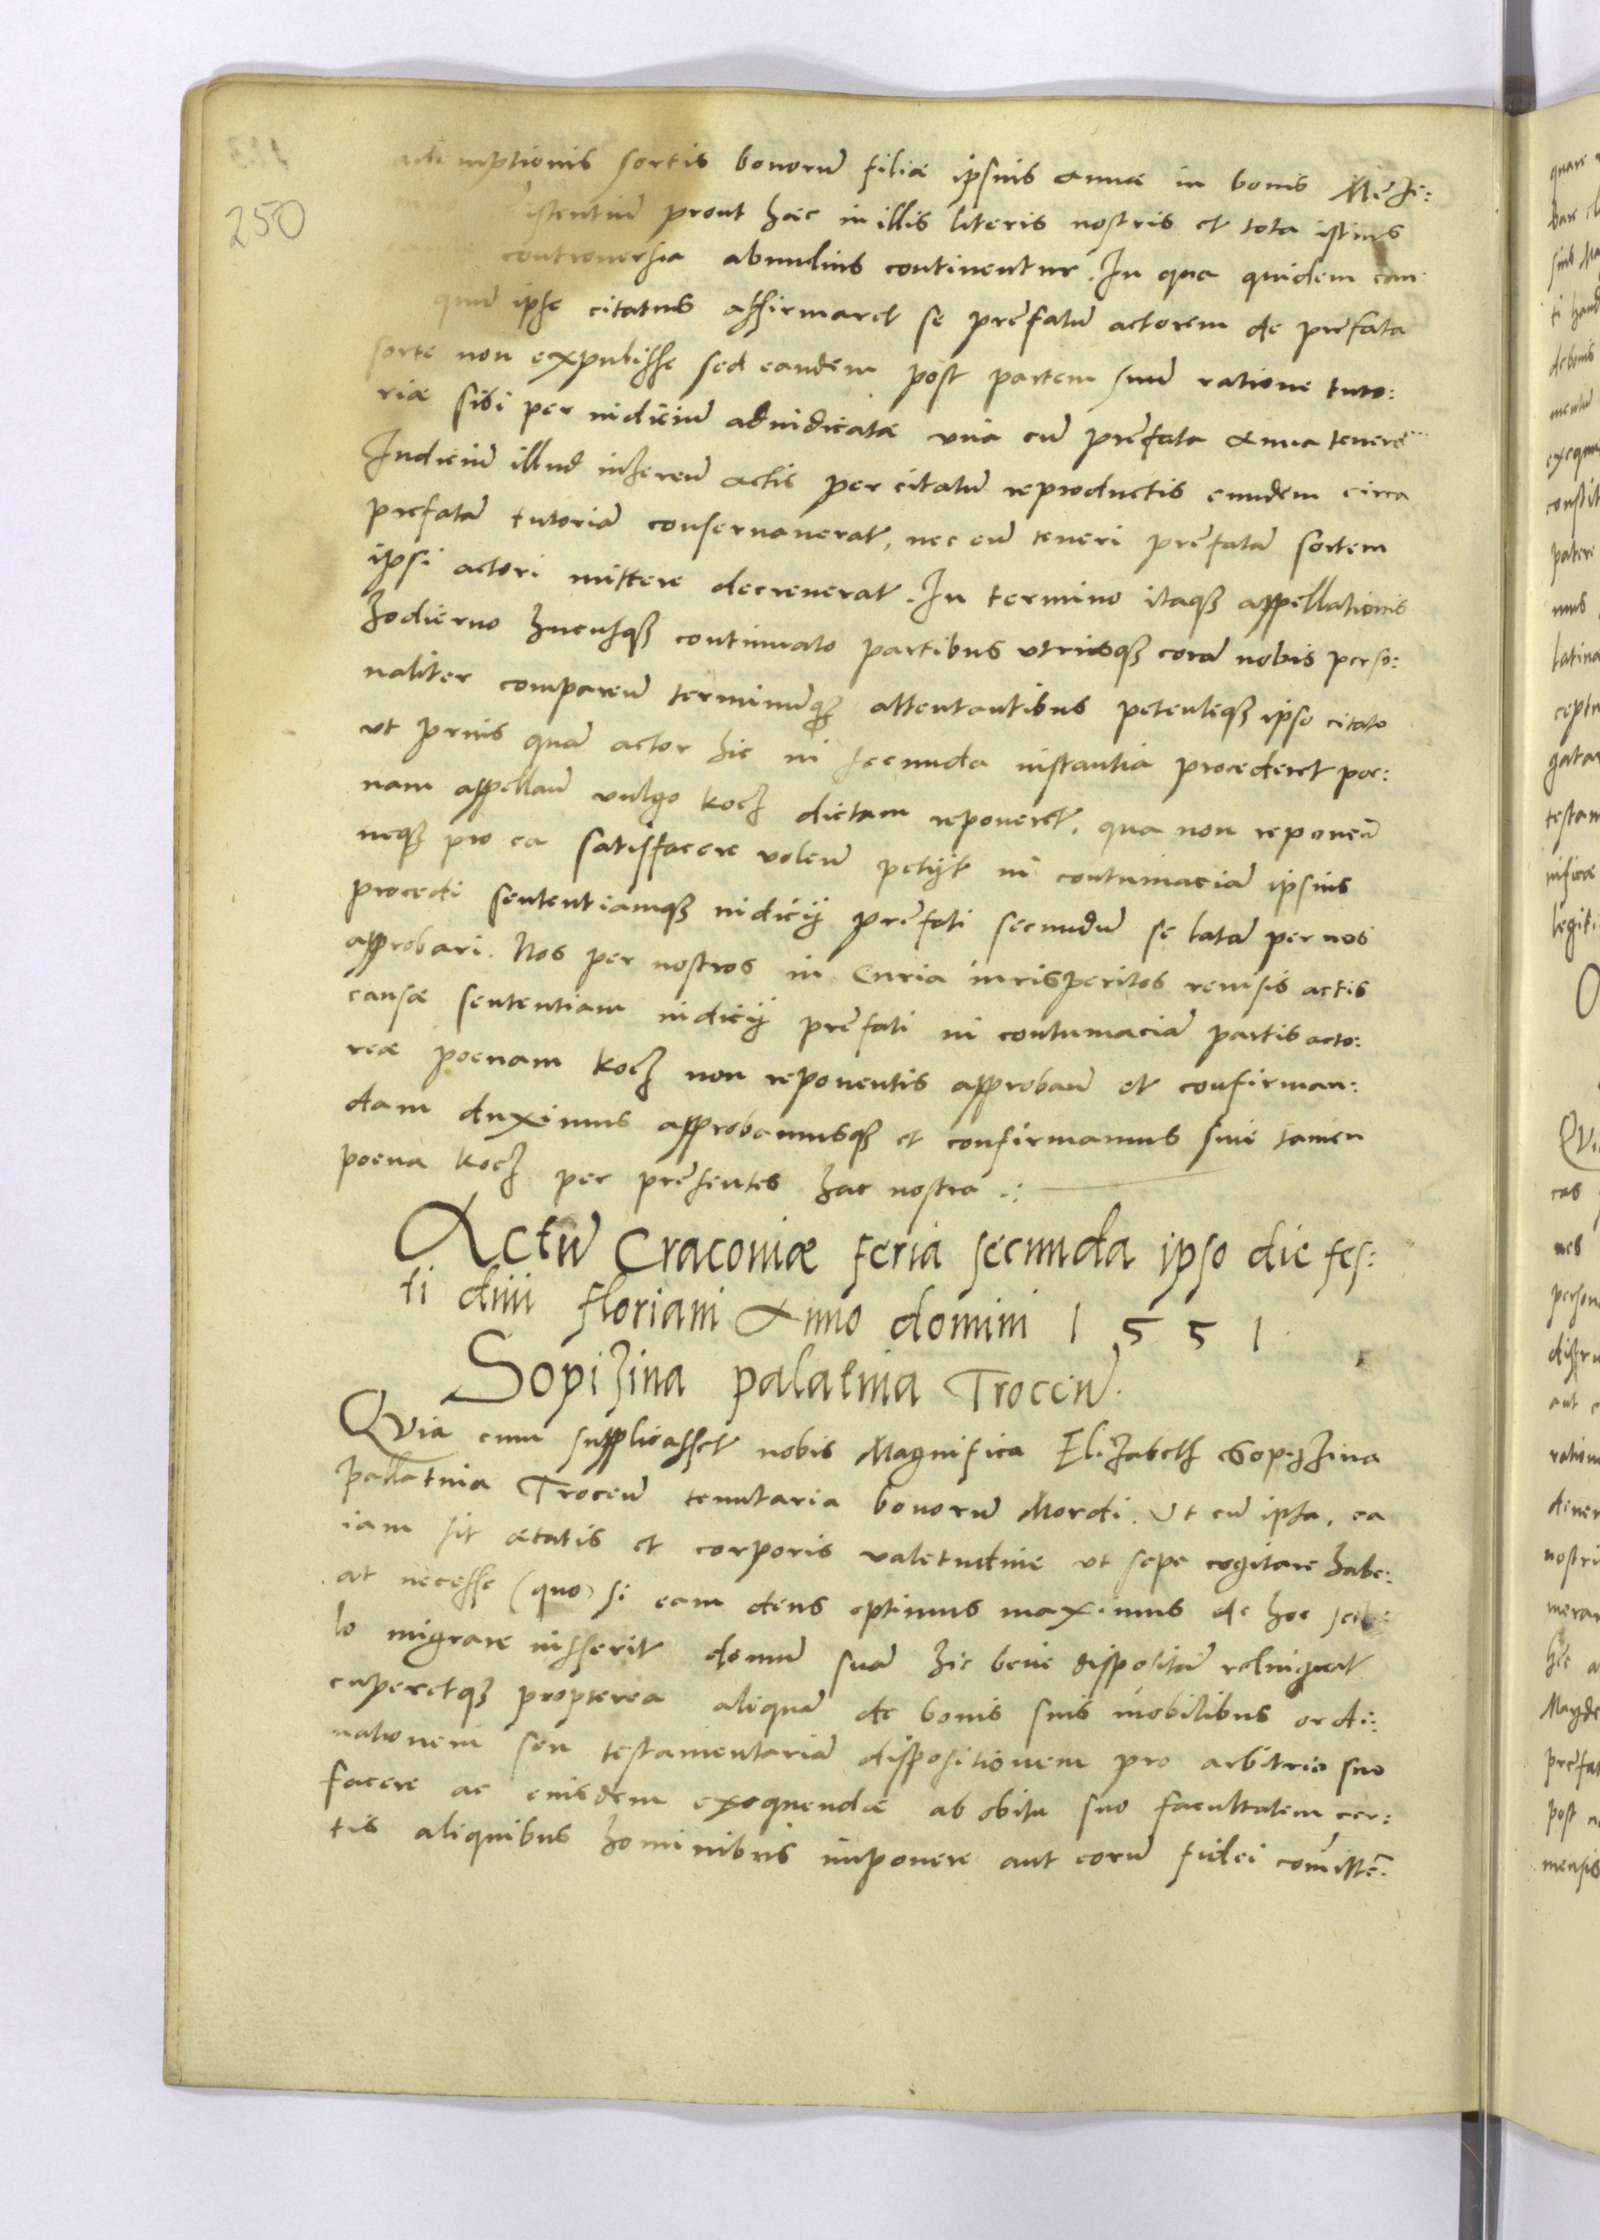 250
ademptionis sortis bonorũ filiæ ipsius Annæ in bonis
istentiũ prout hæc in illis literis nostris et tota istius
controuersia abundius continentur. In qua quidem cau:
quũ ipse citatus affirmaret se prefatũ actorem de prefata
sorte non expulisse sed eandem post partem suã ratione tuto:
riæ sibi per iudiciũ adiudicatæ vna cũ prefata Anna tenere
Iudiciũ illud inhereñ actis per citatũ reproductis eundem circa
prefatã tutoriã conseruauerat, nec eũ teneri prefatã sortem
ipsi actori mittere decreuerat. In termino itaq3 appellationis
hodierno hucusq3 continuato partibus vtrisq3 corã nobis perso:
naliter compareñ terminũq3 attentantibus petenteq3 ipso citato
vt prius quã actor hic in secunda instantia procederet poe:
nam appellañ vulgo kocz dictam reponeret, qua non reponeñ
neq3 pro ea satisfacere voleñ petijt in contumaciã ipsius
procedi sententiamq3 iudicij prefati secundũ se latã per nos
approbari. Nos per nostros in Curia iurisperitos reuisis actis
causæ sententiam iudicij prefati in contumaciã partis acto:
reæ poenam kocz non reponentis approbañ et confirman:
dam duximus approbamusq3 et confirmamus sine tamen
poena kocz per presentes hac nostra .:
Actũ Cracouiæ feria secunda ipso die fes:
ti diui floriani Anno domini 1551
Sopizina palatina Troceñ.
QVia cum supplicasset nobis Magnifica Elizabeth Sopizzina
pallatina Troceñ tenutaria bonorum Mordi. Vt cũ ipsa, ea
iam sit ætatis et corporis valetudine vt sepe cogitare habe:
at necesse (quo) si eam deus optimus maximus de hoc
lo migrare iusserit domũ suã hic bene dispositã relinquat
cuperetq3 propterea aliquã de bonis suis mobilibus ordi:
nationem seu testamentariã dispositionem pro arbitrio suo
facere ac eiusdem exequendæ ab obitu suo facultatem cer:
tis aliquibus hominibus imponere aut eorũ fidei comitte: